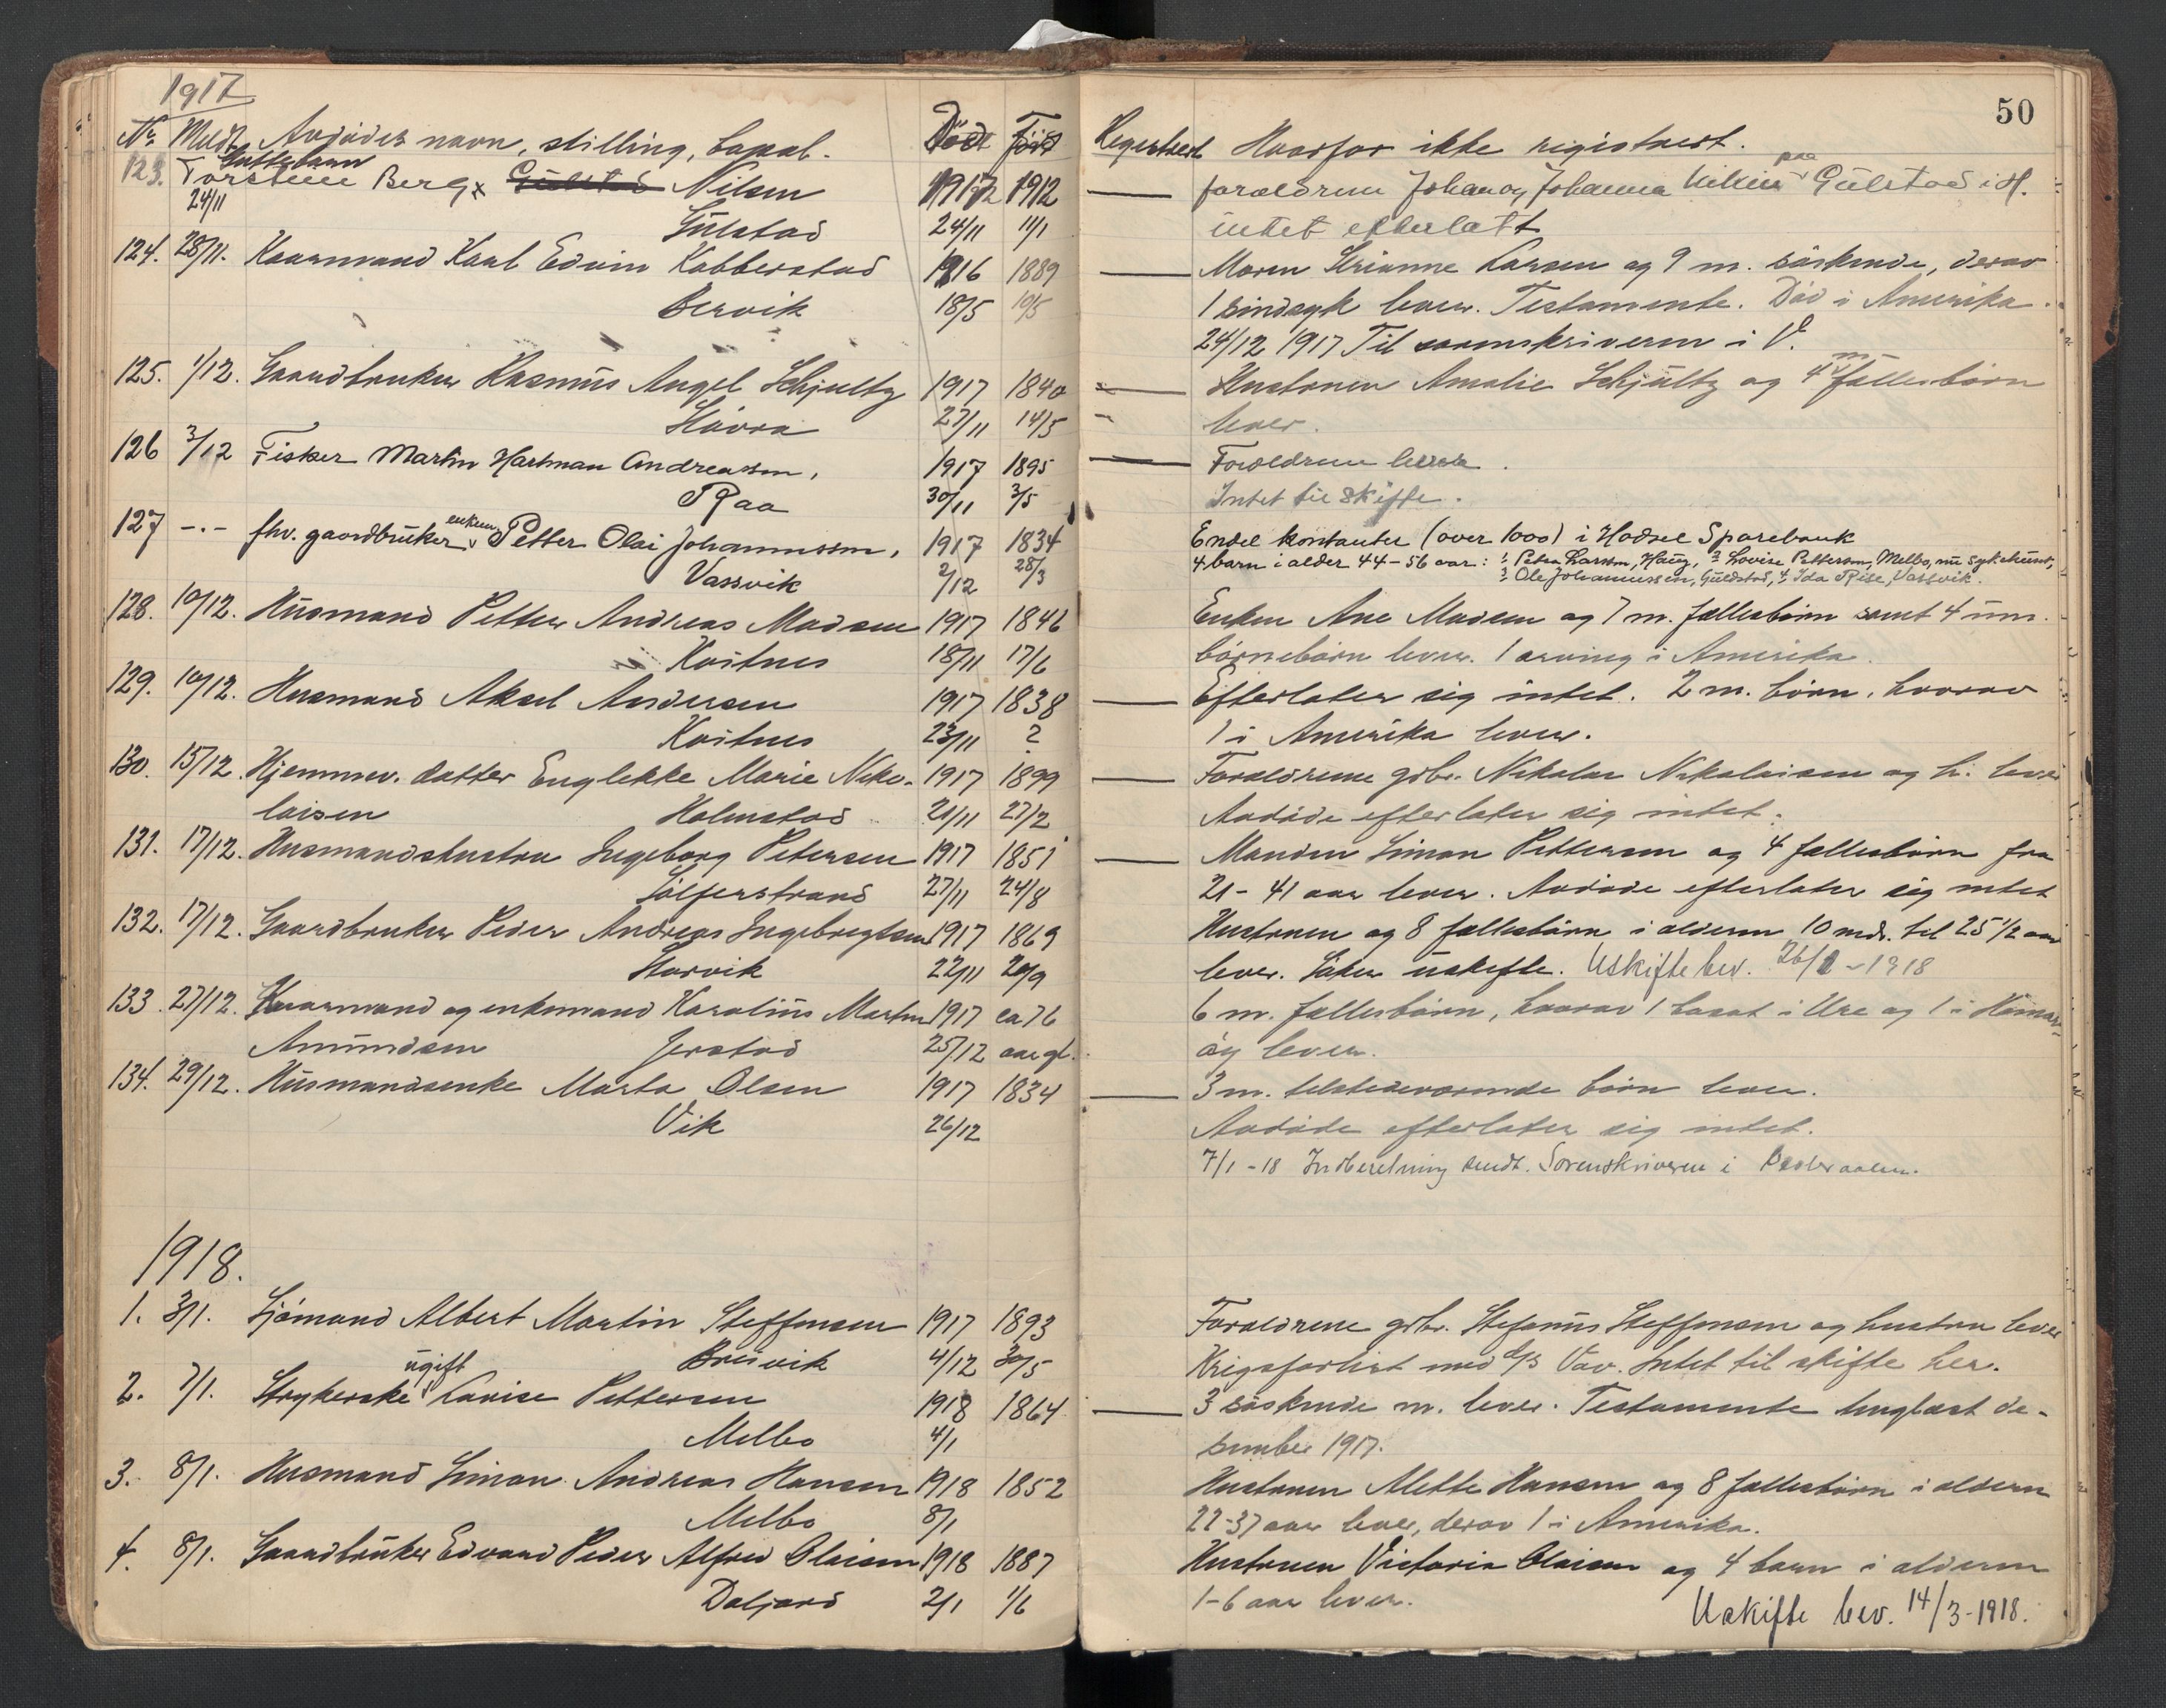 1917
50
Nr. Meldt. Avdödes navn, stilling, bopæl. Död Född Registrert Hvorfor ikke registrert.
123. 24/11 Guttebarn Torstein Berg Gulstad Nilsen 1917 1912 — forældrene Johan og Johanna Nilsen paa Gulstad i H.
Gulstad 24/11 11/1 intet efterlatt
124. 28/11. Kaarmand Karl Edvin Kabberstad 1916 1889 — Moren Larsen og 9 m. söskende, derav
Bervik 18/5 10/5 1 sindsyk lever. Testamente. Död i Amerika.
24/12 1917 Til sorenskriveren i V.
125. 1/12. Gaardbruker Rasmus Angel Schjultz 1917 1840 — Hustruen Amalie Schjultz og 4 m fællesbörn
Hövra 27/11 14/5 lever.
126 3/12 Fisker Martin Hartman Andreassen, 1917 1895 — Forældrene lever.
Raa 30/11 3/5 Intet til skifte.
127 -.- fhv. gaardbruker enkem. Petter Olai Johannessen, 1917 1834 Endel kontanter (over 1000) i Hadsel Sparebank
Vassvik 2/12 28/3 4 barn i alder 44-56 aar: 1, Petra Larssen, Haug, 2 Lovise Pettersen, Melbo, nu sykehuset,
3 Ole Johannessen, Guldstad, 4, Ida Riise, Vassvik.
128. 10/12. Husmand Petter Andreas Madsen 1917 1846 Enken Ane Madsen og 7 m. fællesbörn samt 4 um.
Kvitnes 18/11 17/6 börnebörn lever. 1 arving i Amerika.
129. 10/12. Husmand Aksel Andersen 1917 1838 — Efterlater sig intet. 2 m. börn, hvorav
Kvitnes 23/11 ? 1 i Amerika lever.
130. 15/12. Hjemmev. datter Englekke Marie Niko- 1917 1899 — Forældrene gdbr. Nikolai Nikolaisen og h. lever
laisen Holmstad 21/11 27/2 Avdöde efterlater sig intet.
131. 17/12. Husmandshustru Ingeborg Petersen 1917 1851 — Manden Simon Pettersen og 4 fællesbörn fra
27/11 24/8 21-41 aar lever. Avdöde efterlater sig intet
132. 17/12. Gaardbruker Peder Andreas Ingebrigtsen 1917 1869 Hustruen og 8 fællesbörn i alderen 10 mdr. til 25 1/2 aar
Storvik 22/11 20/9 lever. Söker uskifte. Uskifte bev. 26/2-1918
133. 27/12. Kaarmand og enkemand Karolius Martin 1917 ca 76 6 m. fællesbörn, hvorav 1 bosat i Ure og 1 i Hamar-
Amundsen Jerstad 25/12 aar gl. öy lever.
134. 29/12. Husmandsenke Marta Olsen 1917 1834 — 3 m. tilstedeværende börn lever.
Vik 26/12 Avdöde efterlater sig intet.
7/1-18 Indberetning sendt. Sorenskriveren i Vesteraalen.
1918.
1. 3/1. Sjömand Albert Martin Steffensen 1917 1893 Forældrene gdbr. Stefanus Steffensen og hustru lever
Breivik 4/12 30/5 Krigsforlist med d/s Vav. Intet til skifte her.
2. 7/1. Strykerske ugift Lovise Pettersen 1918 1864 — 3 söskende m. lever. Testamente tinglæst de-
Melbo 4/1 sember 1917.
3. 8/1. Husmand Simon Andreas Hansen 1918 1852 Hustruen Alette Hansen og 8 fællesbörn i alderen
Melbo 8/1 22-37 aar lever, derav 1 i Amerika.
4. 8/1. Gaardbruker Edvard Peder Alfred Olaisen 1918 1887 Hustruen Victoria Olaisen og 4 barn i alderen
Daljord 2/1 1/6 1-6 aar lever. Uskifte bev. 14/3-1918.